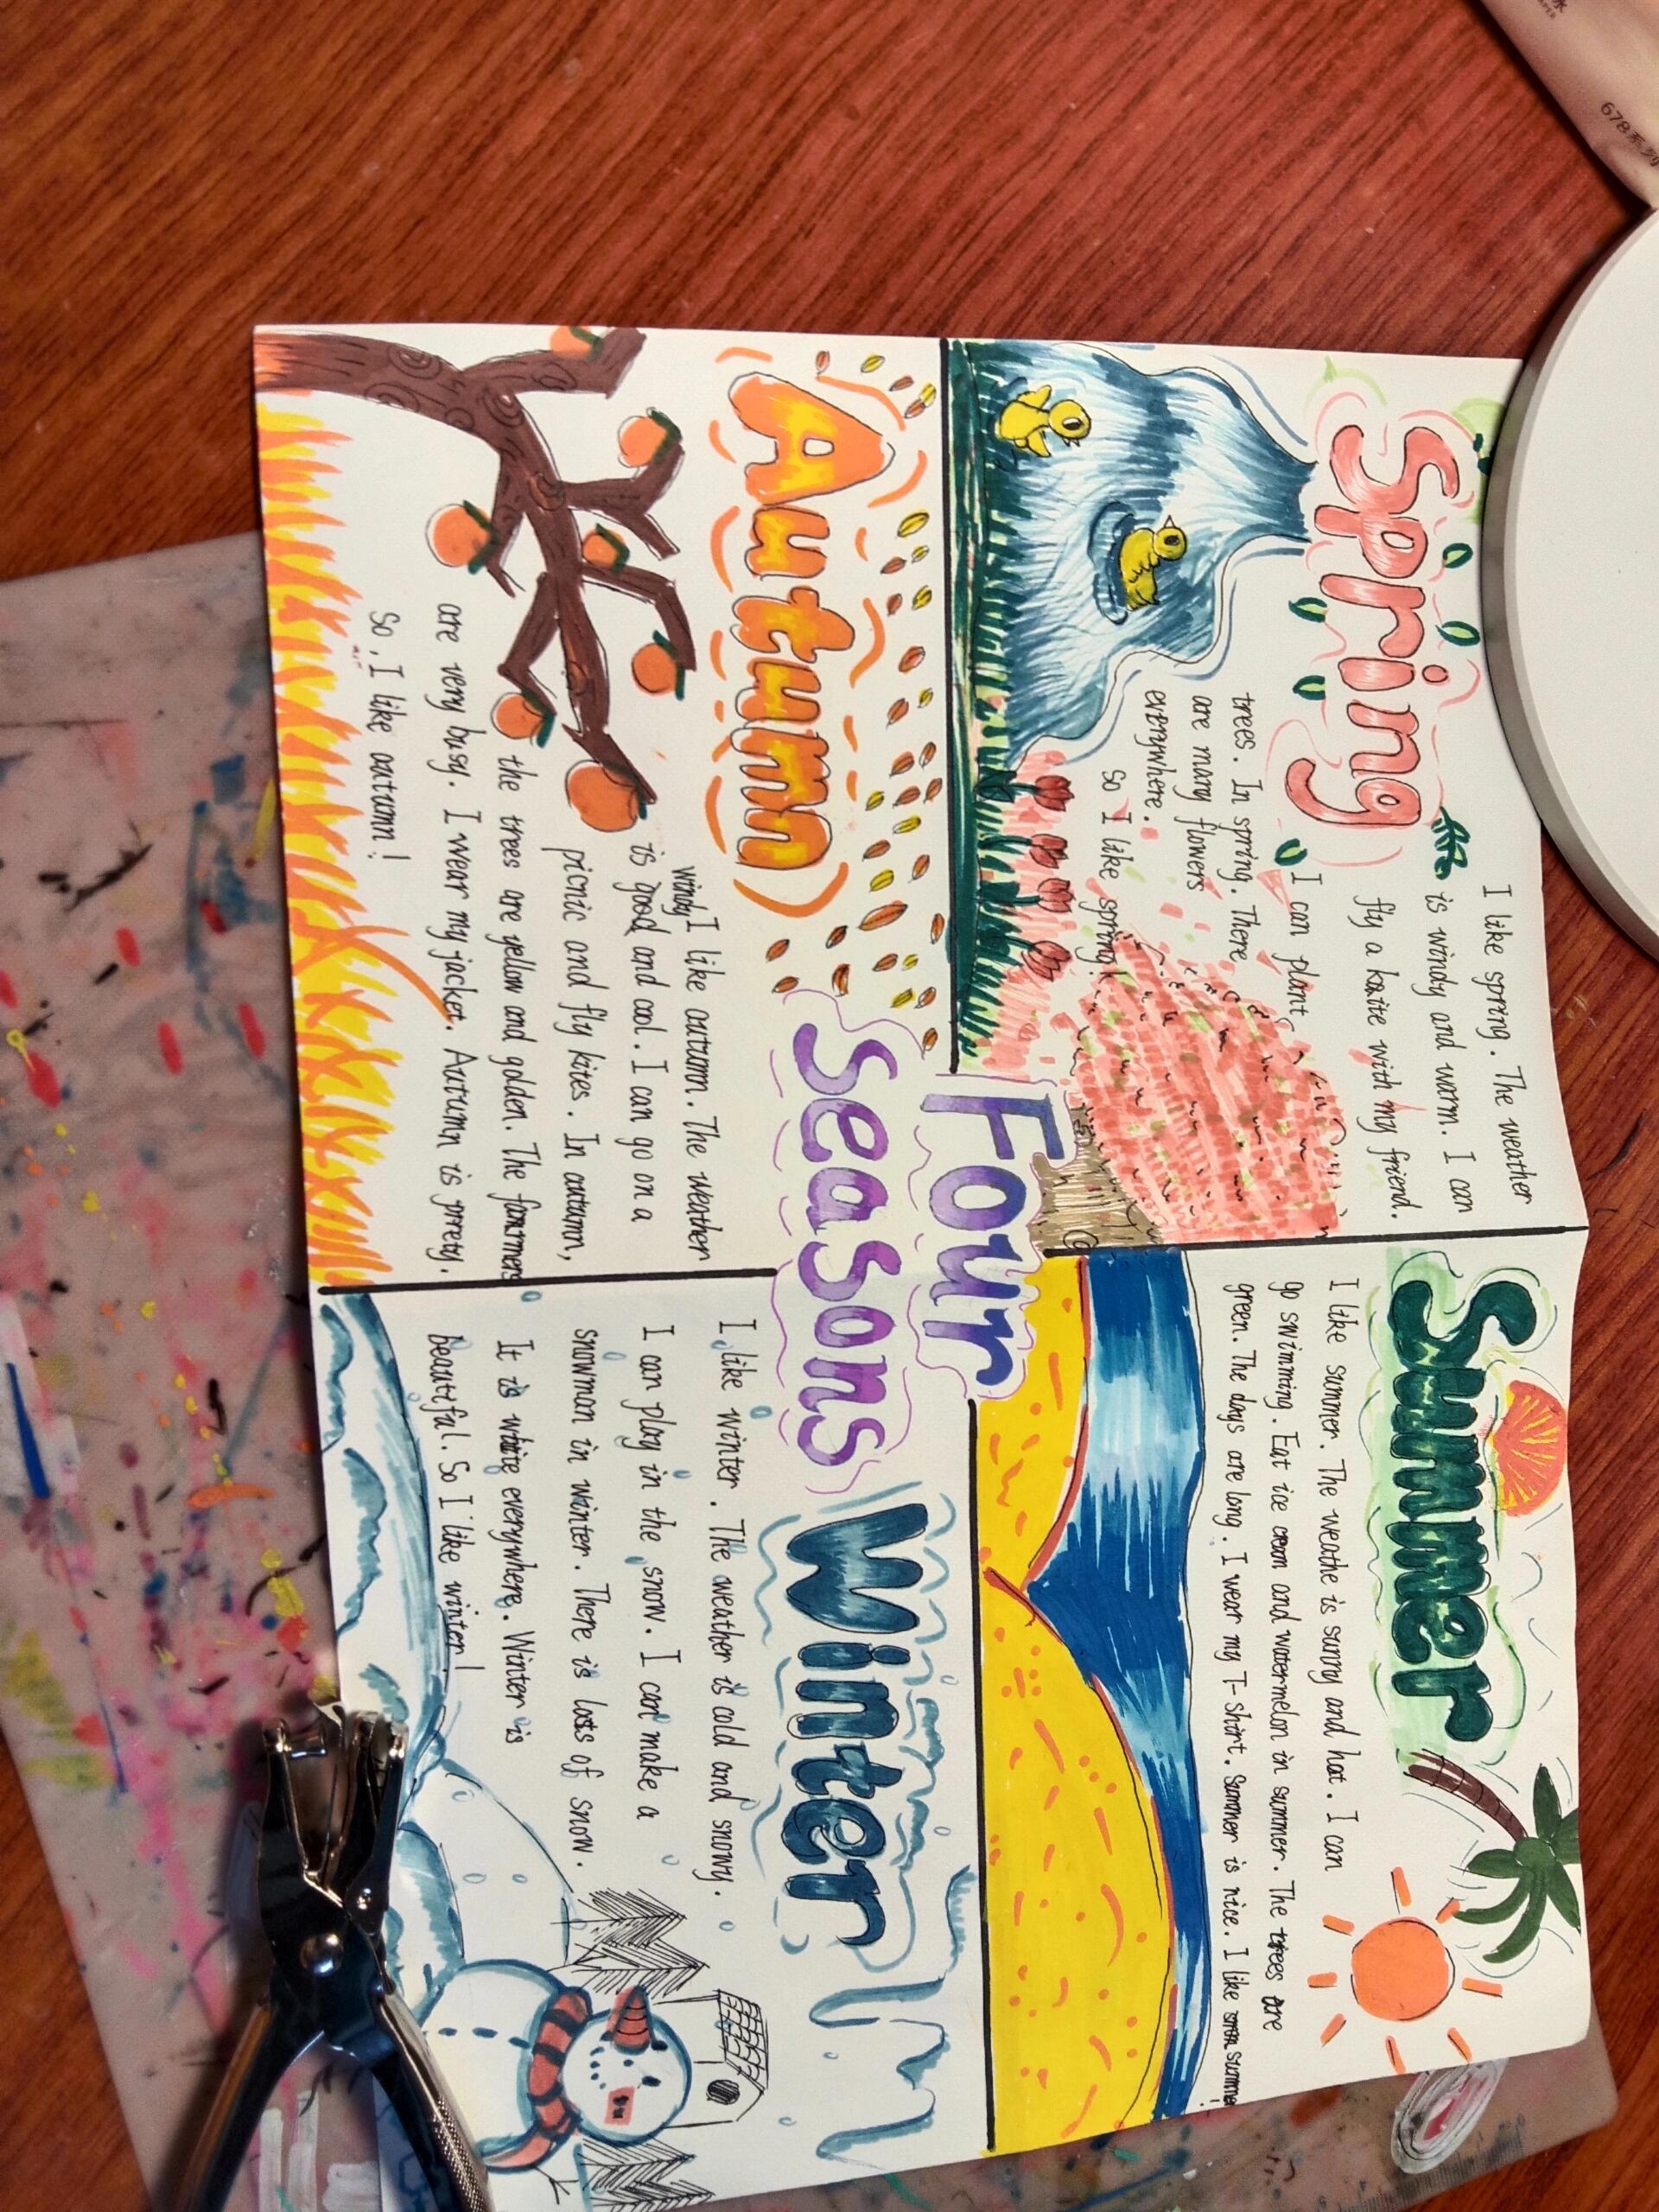 Spring
I like spring. The weather
is windy and warm. I can
fly a kaite with my friend.
I can plant
trees. In spring. There
are many flowers
everywhere.
So I like spring!
Summer
I like summer. The weathe is sunny and hot. I can
go swimming. Eat ice cream and watermelon in summer. The trees are
green. The days are long. I wear my T-shirt. Summer is nice. I like summer!
Four
Seasons
Autumn
windy
I like autumn. The weather
is good and cool. I can go on a
picnic and fly kites. In autumn,
the trees are yellow and golden. The farmers
are very busy. I wear my jacket. Autumn is prrety.
So, I like autumn!
Winter
I like winter. The weather is cold and snowy.
I can play in the snow. I can make a
snowman in winter. There is lots of snow.
It is white everywhere. Winter is
beautful. So I like winter!
678系列